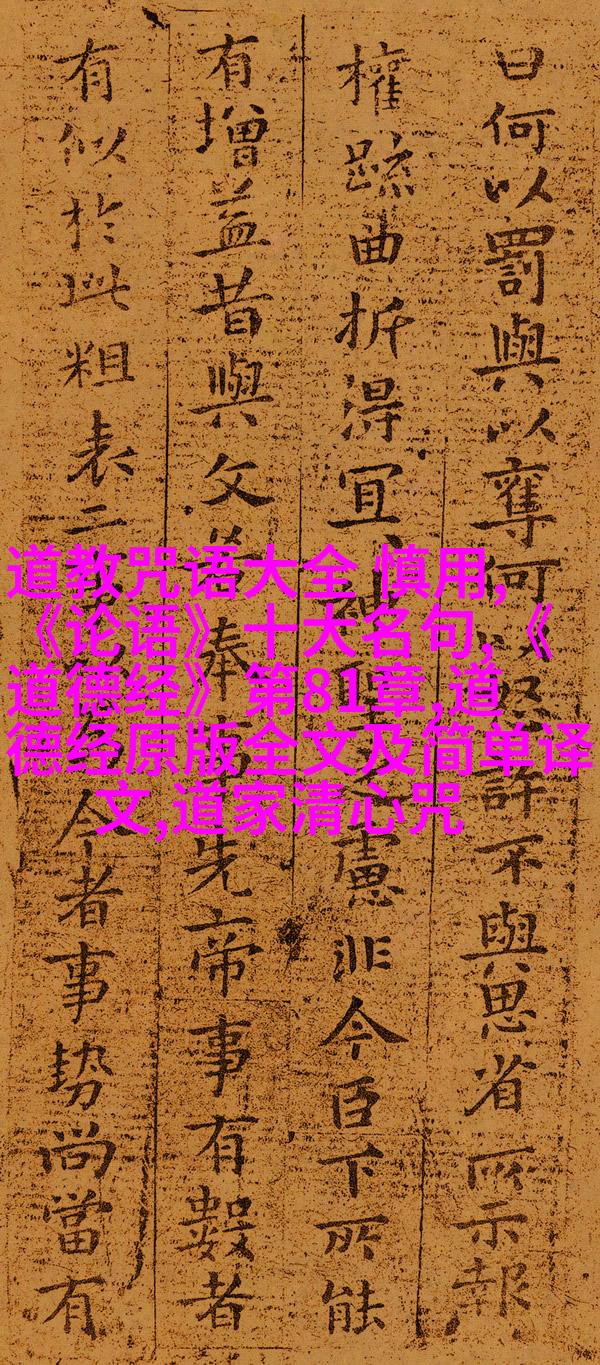 曰何以罰與以奪何以怒許不與思省所示報
權疏曲折得冝神聖之慮非今臣下所能
有增益昔與文若奉事先帝事有數者
有似於此粗表二今者事勢尚當有
道教咒语大全 慎用,
《论语》十大名句,《
道德经》第81章,道
德经原版全文及简单译
文,道家清心咒